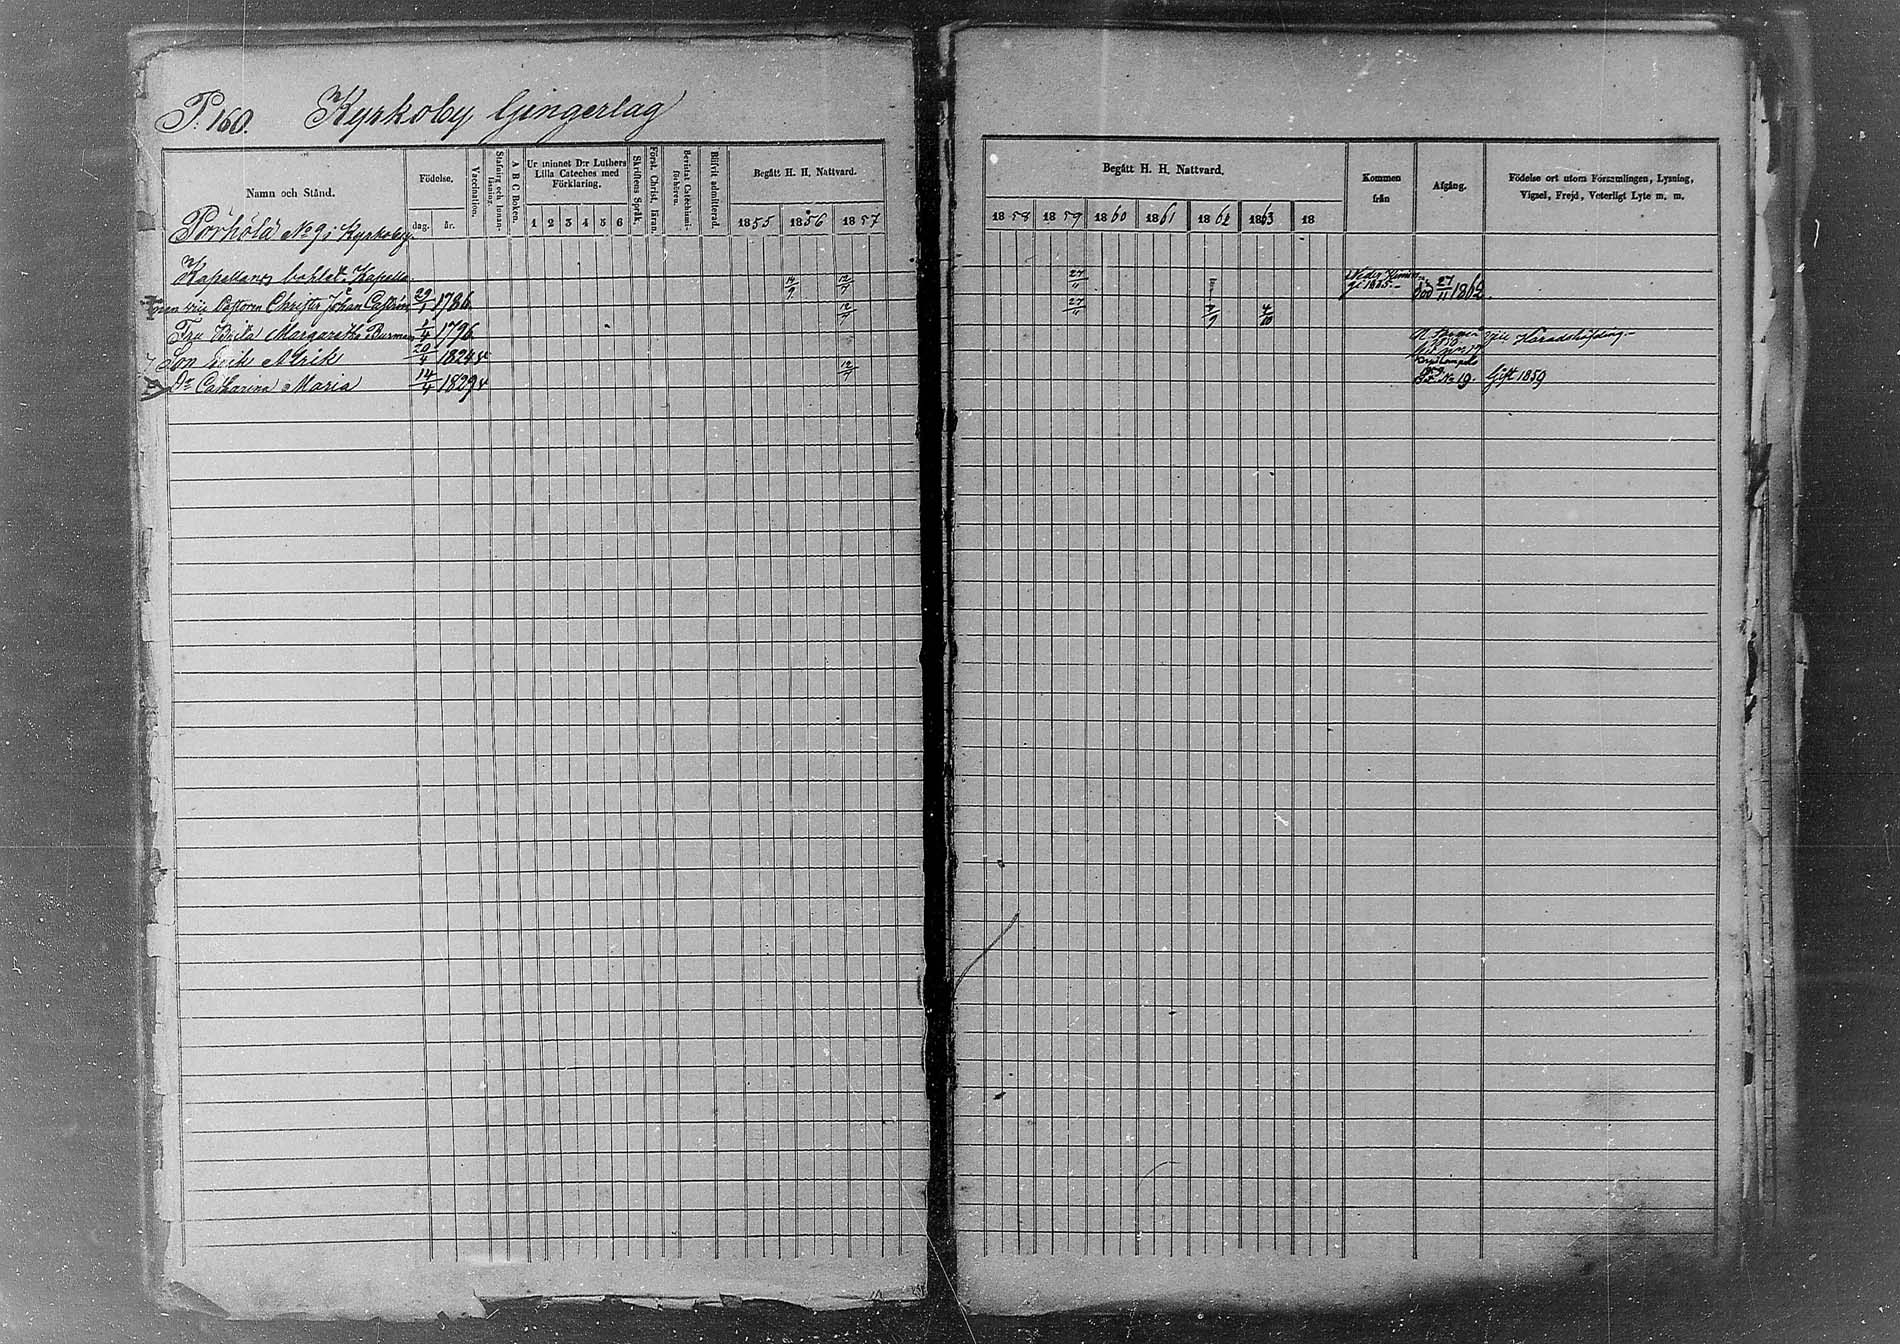 P. 160. Kyrkoby Gingerlag
Namn och Stånd.
Födelse.
dag.
år.
Vaccination.
Stafning och Innan-
läsning.
A B C Boken.
Ur minnet D:r Luthers
Lilla Cateches med
Förklaring.
1 2 3 4 5 6
Skriftens Språk.
Först. Christ. läran.
Bevistat Catechismi-
förhören.
Blifvit admitterad.
Begått H. H. Nattvard.
1855 1856 1857
Pörhölä No 9 i Kyrkoby.
Kapellans bohlet. Kapella-
nen Christer Johan Castrén 29/1 1786
Fru Brita Margaretha Burman 1796
Son Erik Alrik 20/4 1824
Dr Catharina Maria 14/4 1829
12/7
12/7
12/7
Begått H. H. Nattvard.
1858 1859 1860 1861 1862 1863 18
Kommen
från
Afgång.
Födelse ort utom Församlingen, Lysning,
Vigsel, Frejd, Veterligt Lyte m. m.
27/11
27/11
1825.
död 27/11 1862.
vice Häradshöfding
No 19. Gift 1859